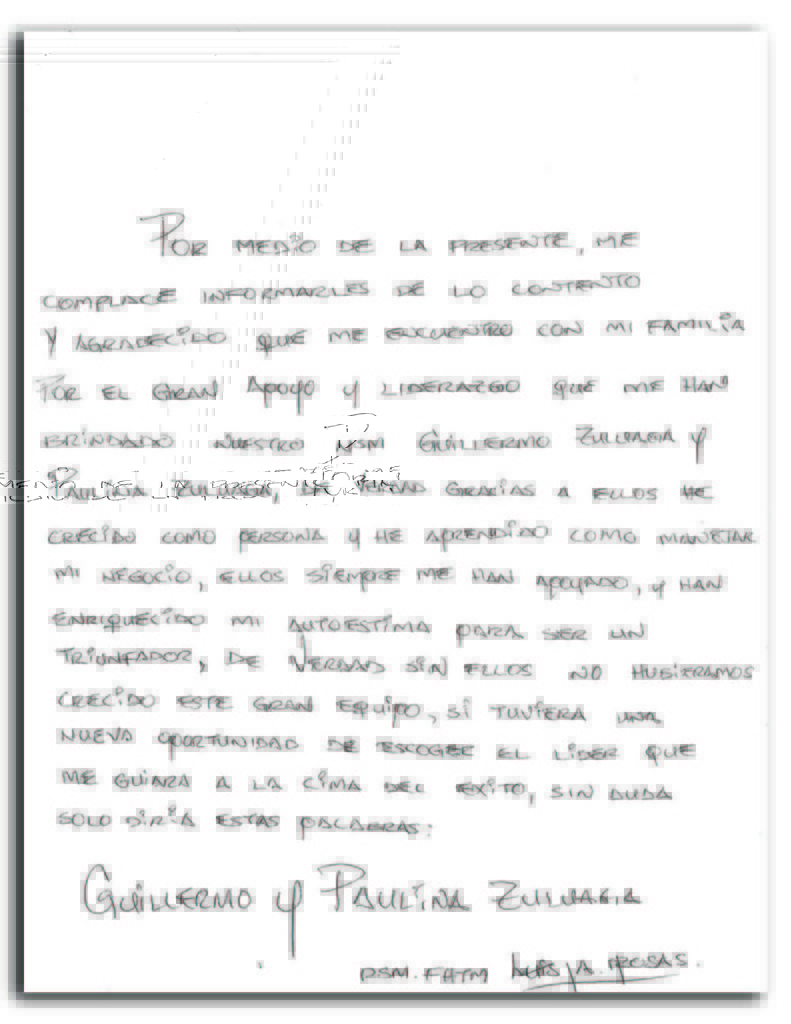 Por medio de la presente, me
complace informarles de lo contento
y agradecido que me encuentro con mi familia
por el gran apoyo y liderazgo que me han
brindado nuestro NSM Guillermo Zuluaga y
Paulina Zuluaga, de verdad gracias a ellos he
crecido como persona y he aprendido como manejar
mi negocio, ellos siempre me han apoyado, y han
enriquecido mi autoestima para ser un
triunfador, de verdad sin ellos no hubieramos
crecido este gran equipo, si tuviera una
nueva oportunidad de escoger el lider que
me guiara a la cima del exito, sin duda
solo diria estas palabras:
Guillermo y Paulina Zuluaga
DSM. FHTM